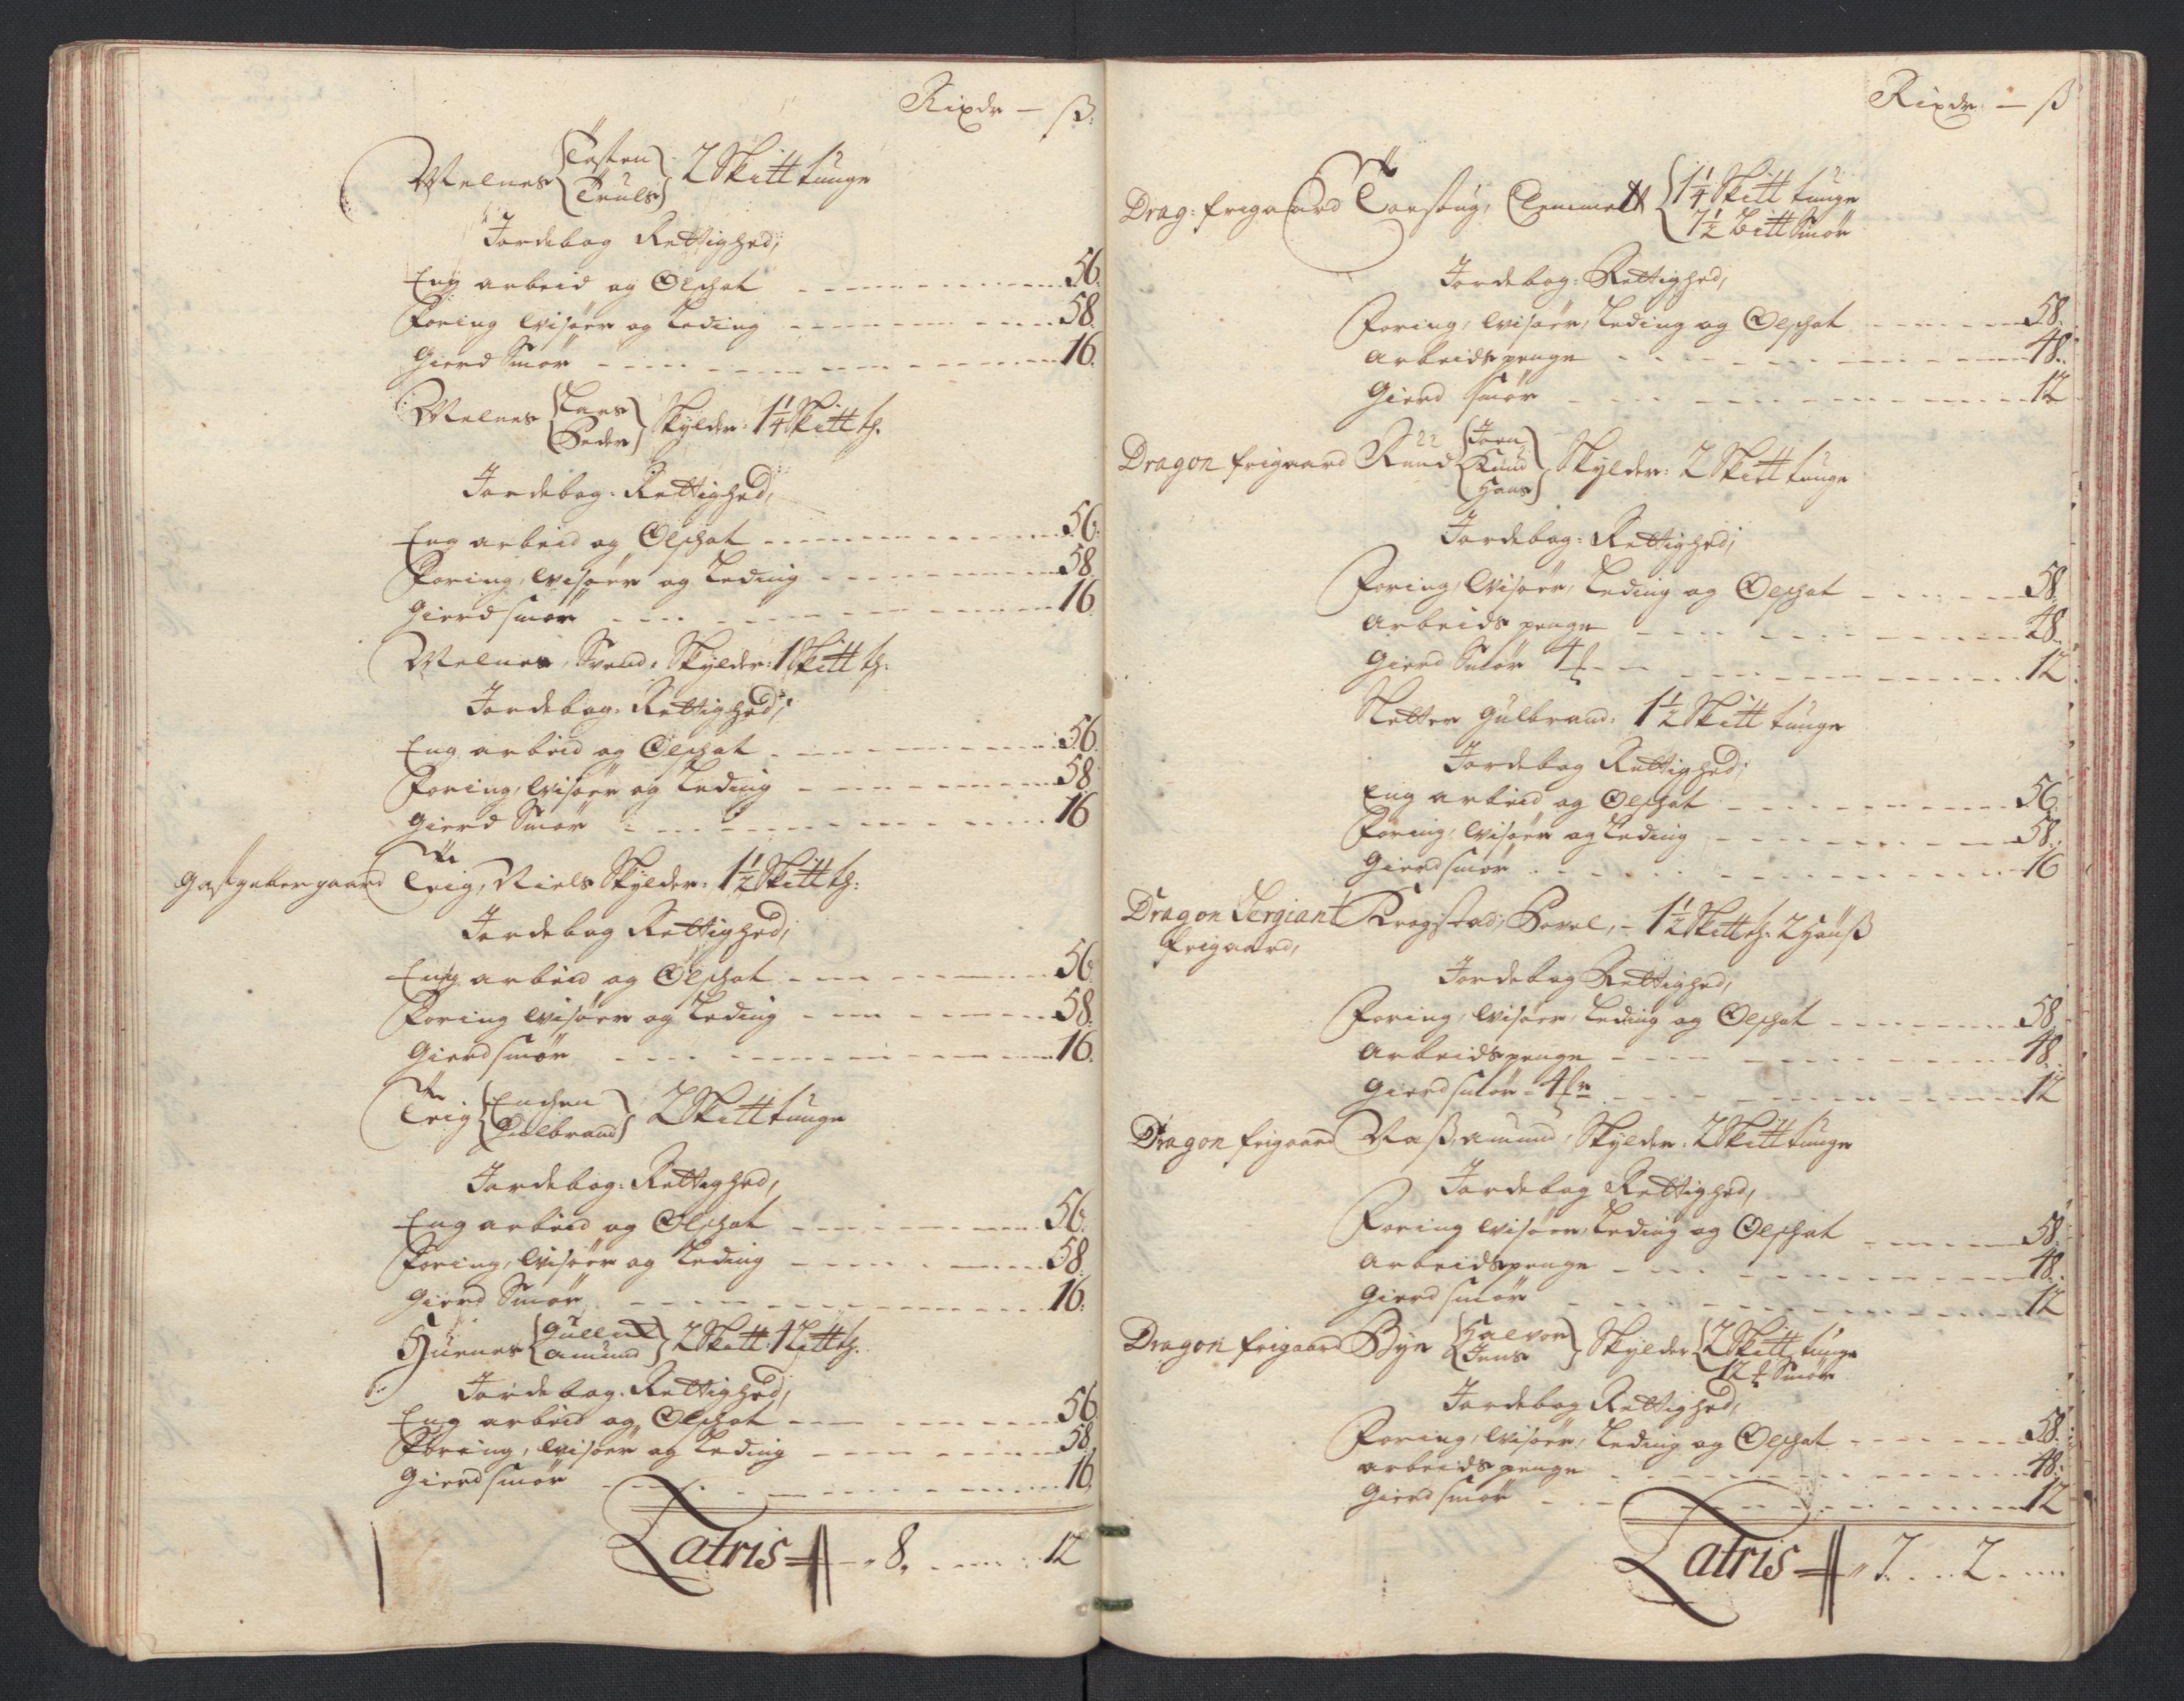 Rixdr — ß.
Melnes { Tosten Truls } 2 Skitt tunge
Jordebog Rettighed,
Eng arbeid og Ølschat 56.
Foring Wisøer og Leding 58.
Gierd Smør 16.
Melnes { Lars Peder } Skylder: 1¼ Skitt tg.
Jordebog: Rettighed,
Eng arbeid og Ølschat 56.
Foring, Wisøer og Leding 58.
Gierd smør 16
Melnes, Svend, Skylder: 1 Skitt tg.
Jordebog: Rettighed,
Eng arbeid og Ølschat 56.
Foring, Wisøer og Leding 58
Gierd Smør 16
Gastgeber gaard Krig, Niels Skylder: 1½ Skitt tg:
Jordebog Rettighed,
Eng arbeid og Ølschat 56
Foring Wisøer og Leding 58.
Gierd smør 16.
Krig { Gulbrand } 2 Skitt tunge
Jordebog: Rettighed,
Eng arbeid og Ølschat 56.
Foring, Wisøer og Leding 58.
Gierd Smør 16.
Huenes { Amund } 2 Skitt: 1 Litt tg.
Jordebog: Rettighed,
Eng arbeid og Ølschat 56
Foring, Wisøer og Leding 58.
Gierd smør 16.
Latris 8. 12
Rixdr. — ß
Drag: frigaard Clemmet { 1¼ Skitt tunge
7½ bitt Smør
Jordebog: Rettighed,
Foring, Wisøer, Leding og Ølschat 58.
Arbeidspenge 48.
Gierd smør 12
Dragon frigaard Rund { Joen Knud Hans } Skylder: 2 Skitt tunge
Jordebog: Rettighed,
Foring, Wisøer, Leding og Ølschat 58.
Arbeids penge 48.
Gierd Smør 12
Sletter Gulbrand: 1½ Skitt tunge
Jordebog Rettighed,
Eng arbeid og Ølschat 56.
Foring, Wisøer og Leding 58.
Gierd smør 16
Dragon Sergiant Krogstad, Povel, - 1½ Skitt tg: 2 Hüuß
frigaard,
Jordebog Rettighed,
Foring, Wisøer, Leding og Ølschat 58
Arbeidspenge 48.
Gierd smør 12
Dragon frigaard Naß, Amund, Skylder: 2 Skitt tunge
Jordebog Rettighed,
Foring Wisøer, Leding og Ølschat 58.
Arbeidspenge 48.
Gierd smør 12
Dragon frigaard Bye { Halvor Jens } Skylder { 2 Skitt tunge
12 Smør
Jordebog Rettighed,
Foring, Wisøer, Leding og Ølschat 58.
Arbeids penge 48.
Gierd smør 12
Latris 7. 2